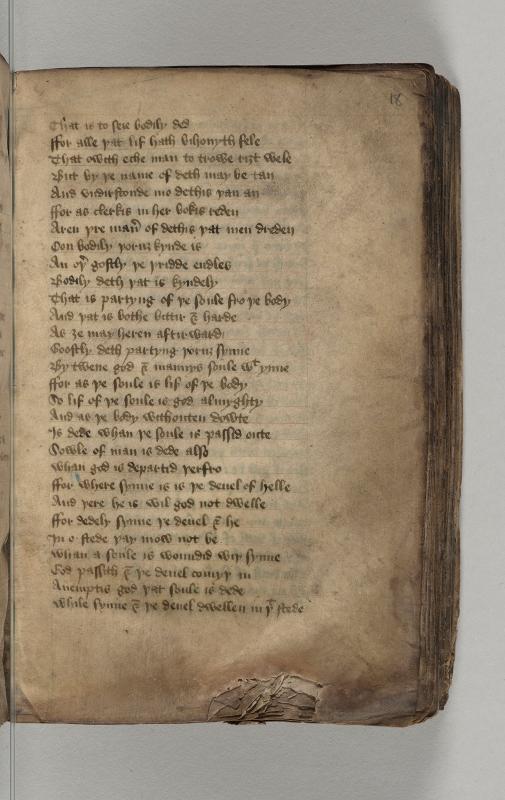 18
That is to seie bodily ded
ffor alle þat lif hath bihouyth fele
That owith eche man to trowe riȝt wele
But by þe name of deth may be tan
And vndirstonde mo dethis þan an
ffor as clerkis in her bokis reden
Aren þre man̄ of dethis þat men dreden
Oon bodily þoruȝ kynde is
An oþ̓ gostly þe þridde endles
Bodily deth þat is kyndely
That is partyng of þe soule fro þe body
And þat is bothe bittir & harde
As ȝe may heren aftirward
Goostly deth partyng þoruȝ synne
By twene god & mannys soule wᵗ ynne
ffor as þe soule is lif of þe body
So lif of þe soule is god almyghty
And as þe body withouten dowte
Is dede whan þe soule is passid oute
Sowle of man is dede also
whan god is departid þerfro
ffor where synne is is þe deuel of helle
And þere he is wil god not dwelle
ffor dedely synne þe deuel & he
In o stede þay mow not be
whan a soule is woundid wiþ synne
God passith & þe deuel comyþ in
Anemptis god þat soule is dede
while synne & þe deuel dwellen in þᵗ stede